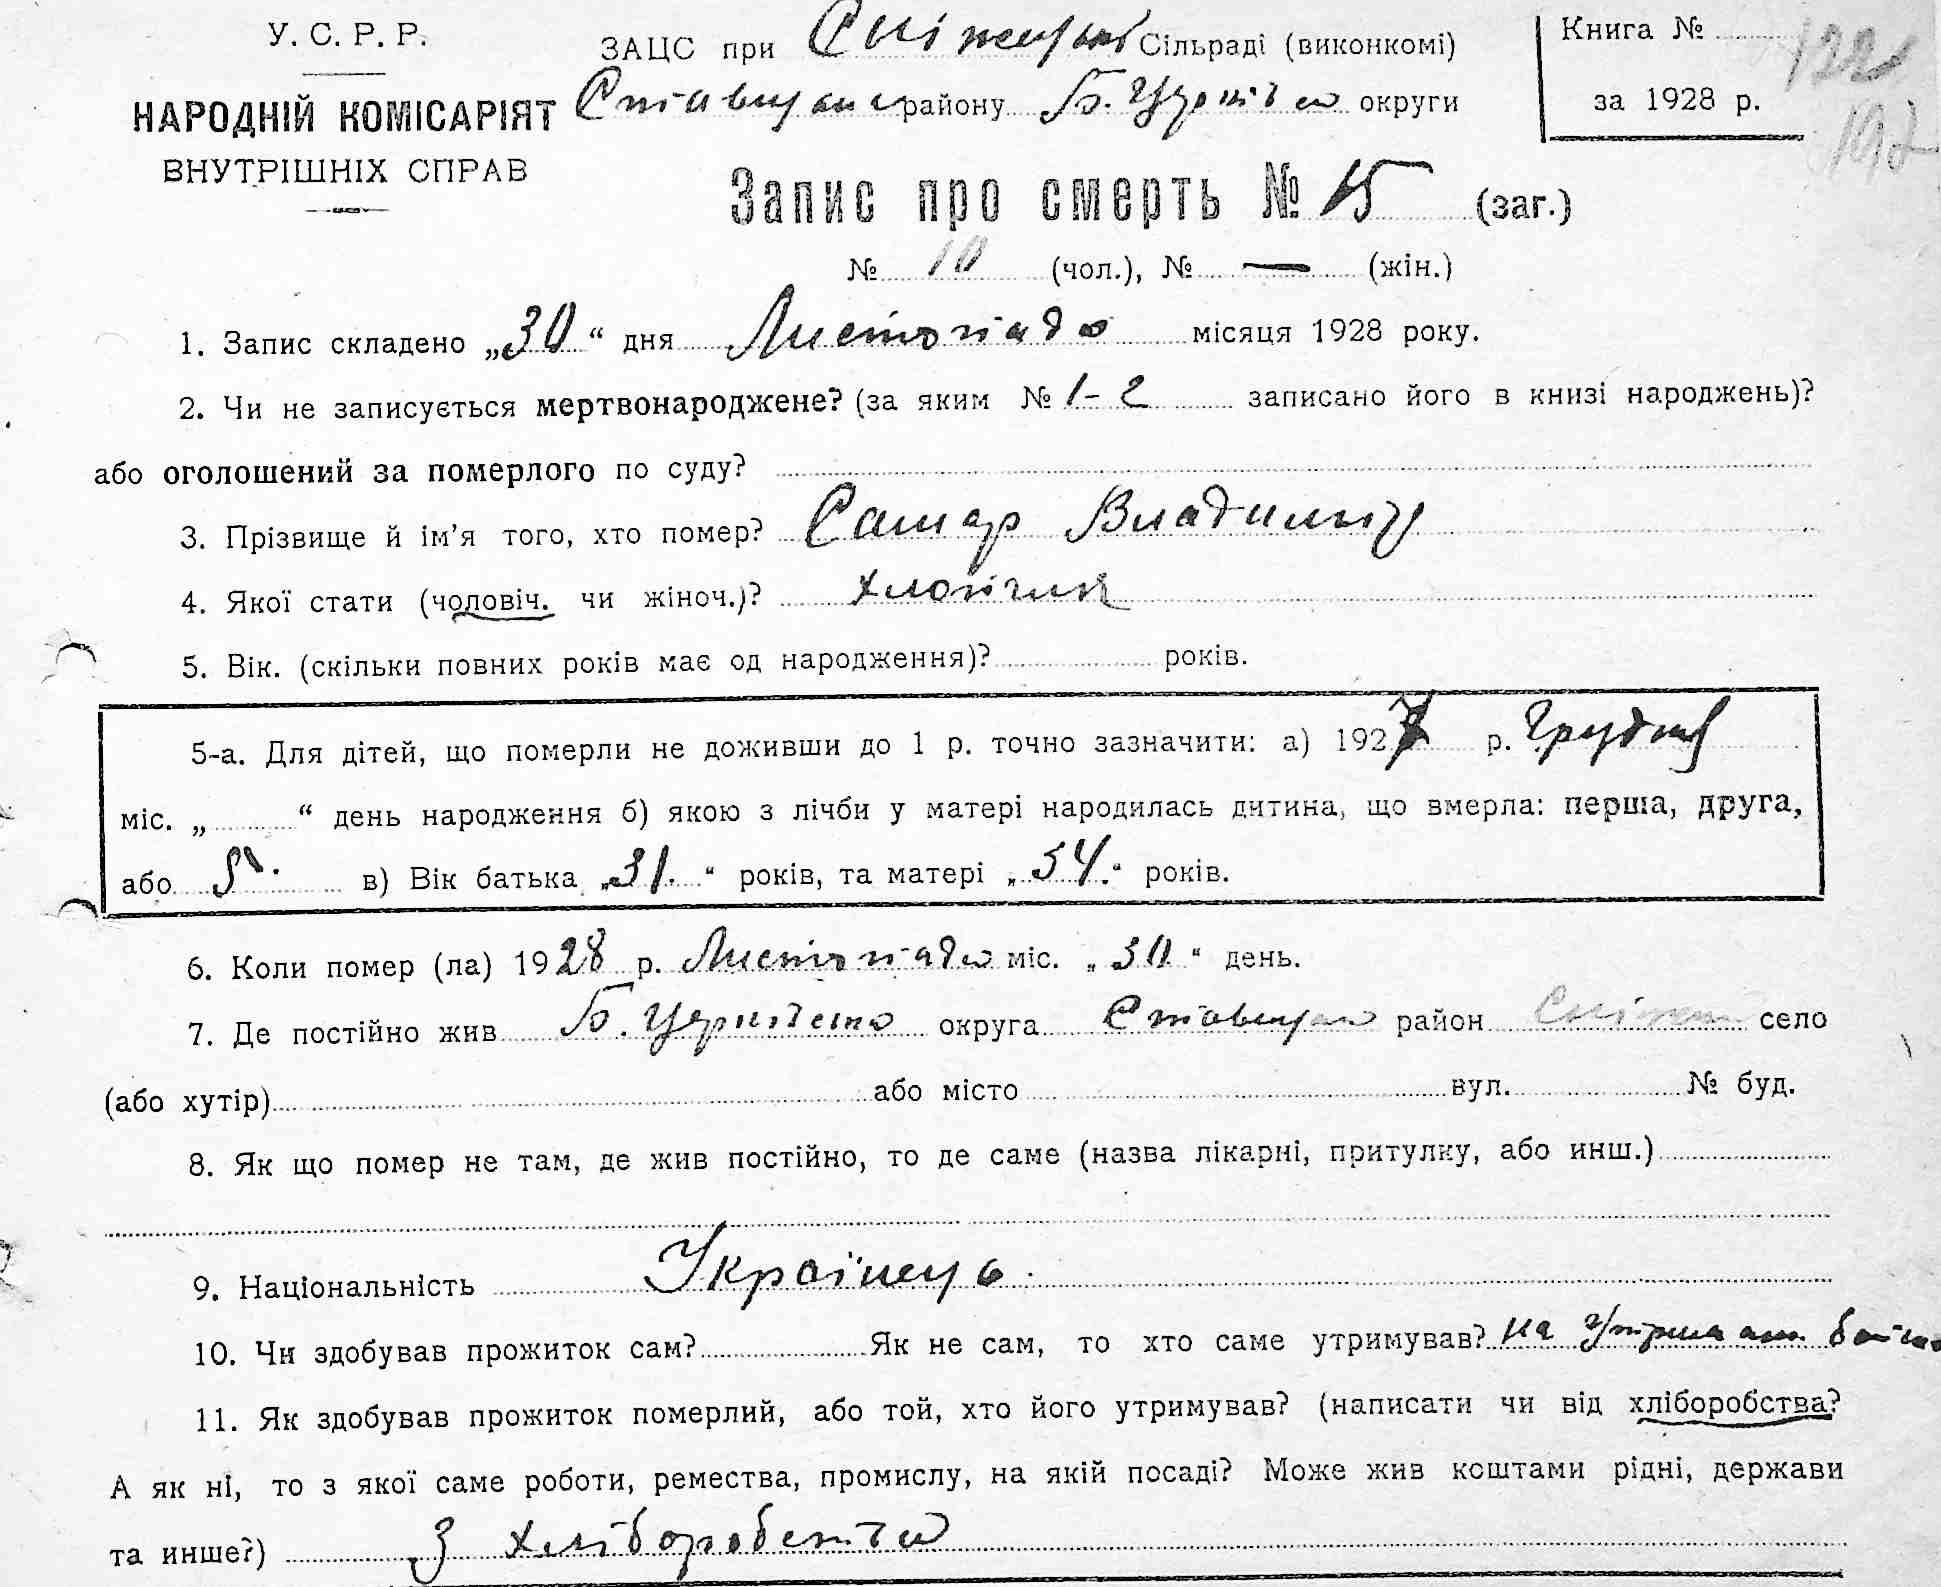 У. С. Р. Р.
НАРОДНІЙ КОМІСАРІЯТ
ВНУТРІШНІХ СПРАВ
ЗАЦС при Сніжерської Сільраді (виконкомі)
району Б. Церків округи
Книга №
за 1928 р.
Запис про смерть № 15 (заг.)
№ 10 (чол.), № — (жін.)
1. Запис складено „30“ дня Листопада місяця 1928 року.
2. Чи не записується мертвонароджене? (за яким № записано його в книзі народжень)?
або оголошений за померлого по суду?
3. Прізвище й ім’я того, хто помер? Владимир
4. Якої стати (чоловіч. чи жіноч.)? хлопчик
5. Вік. (скільки повних років має од народження)? років.
5-а. Для дітей, що померли не доживши до 1 р. точно зазначити: а) 1927 р. Грудня
міс. „ “ день народження б) якою з лічби у матері народилась дитина, що вмерла: перша, друга,
або в) Вік батька „31.“ років, та матері „ “ років.
6. Коли помер (ла) 1928 р. Листопада міс. „30“ день.
7. Де постійно жив Б. Церківсько округа район село
(або хутір) або місто вул. № буд.
8. Як що помер не там, де жив постійно, то де саме (назва лікарні, притулку, або инш.)
9. Національність Українець.
10. Чи здобував прожиток сам? Як не сам, то хто саме утримував? на утриман. батька
11. Як здобував прожиток померлий, або той, хто його утримував? (написати чи від хліборобства?
А як ні, то з якої саме роботи, ремества, промислу, на якій посаді? Може жив коштами рідні, держави
та инше?) З хліборобства